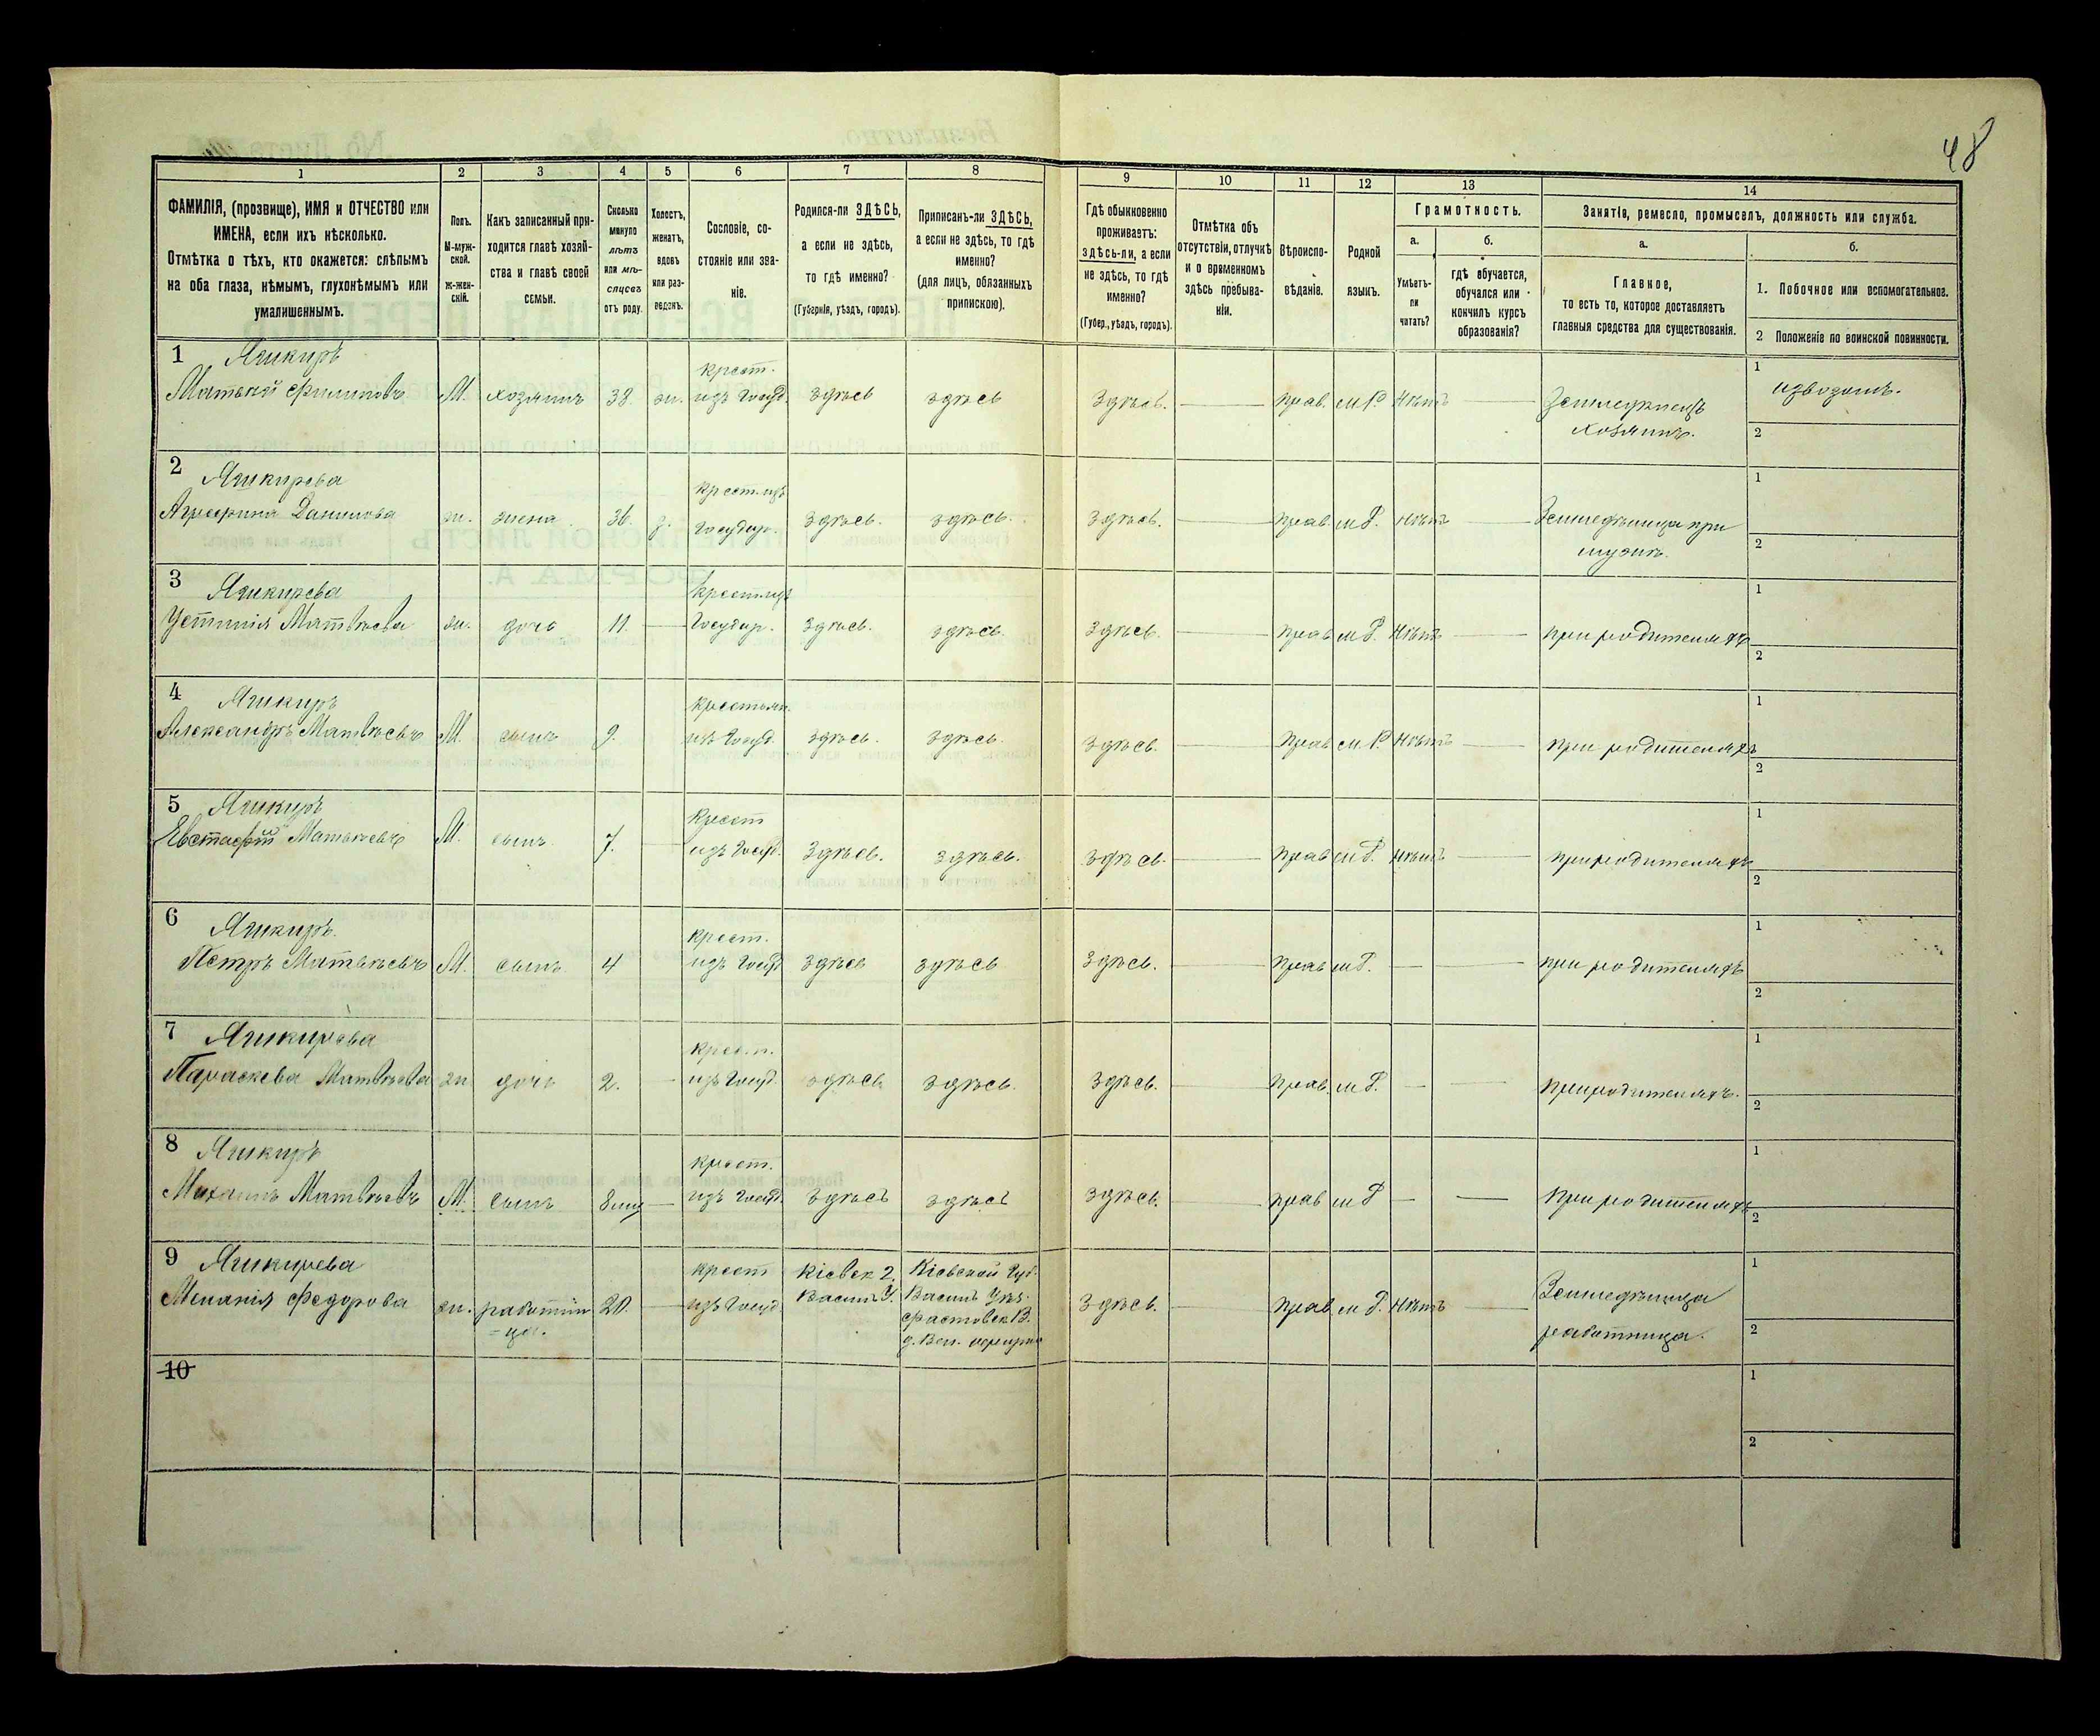 48
1
2
3
4
5
6
7
8
9
10
11
12
13
14
ФАМИЛІЯ, (прозвище), ИМЯ и ОТЧЕСТВО или
ИМЕНА, если ихъ нѣсколько.
Отмѣтка о тѣхъ, кто окажется: слѣпымъ
на оба глаза, нѣмымъ, глухонѣмымъ или
умалишеннымъ.
Полъ.
М-муж-
ской.
Ж-жен-
скій.
Какъ записанный при-
ходится главѣ хозяй-
ства и главѣ своей
семьи.
Сколько
минуло
лѣтъ
или мѣ-
сяцевъ
отъ роду.
Холостъ,
женатъ,
вдовъ
или раз-
веденъ.
Сословіе, со-
стояніе или зва-
ніе.
Родился-ли ЗДѢСЬ,
а если не здѣсь,
то гдѣ именно?
(Губернія, уѣздъ, городъ).
Приписанъ-ли ЗДѢСЬ,
а если не здѣсь, то гдѣ
именно?
(для лицъ, обязанныхъ
припискою).
Гдѣ обыкновенно
проживаетъ:
здѣсь-ли, а если
не здѣсь, то гдѣ
именно?
(Губер., уѣздъ, городъ).
Отмѣтка объ
отсутствіи, отлучкѣ
и о временномъ
здѣсь пребыва-
ніи.
Вѣроиспо-
вѣданіе.
Родной
языкъ.
Грамотность.
а.
Умѣетъ-
ли
читать?
б.
гдѣ обучается,
обучался или
кончилъ курсъ
образованія?
Занятіе, ремесло, промыселъ, должность или служба.
а.
Главное,
то есть то, которое доставляетъ
главныя средства для существованія.
б.
1. Побочное или вспомогательное.
2 Положеніе по воинской повинности.
1
Матвей Филиповъ М. хозяинъ 38 ж. крест. изъ Госуд. здѣсь здѣсь здѣсь. прав. м Р. Нѣтъ Земледѣлецъ хозяинъ. 1 извозомъ. 2
2
Данилова ж. жена 36 з. крест. изъ Государ. здѣсь. здѣсь. здѣсь. прав м Р. нѣтъ Земледѣлица при мужѣ. 1 2
3
Устинія Матвѣева ж. дочь 11 крест. изъ Государ. здѣсь. здѣсь. здѣсь. прав м Р. Нѣтъ при родителяхъ 1 2
4
Александръ Матвѣевъ М. сынъ 9. крестьян. изъ Госуд. здѣсь. здѣсь. здѣсь. прав м Р. Нѣтъ при родителяхъ 1 2
5
Евстафій Матвѣевъ М. сынъ 7. Крест изъ Госуд. здѣсь. здѣсь. здѣсь. прав м Р. Нѣтъ при родителяхъ 1 2
6
Петръ Матвѣевъ М. сынъ 4 крест. изъ Госуд здѣсь здѣсь здѣсь. прав м Р. при родителяхъ 1 2
7
Параскева Матвѣева ж дочь 2. крест. изъ Госуд здѣсь здѣсь. здѣсь. прав. м Р. при родителяхъ. 1 2
8
Михаилъ Матвѣевъ М. сынъ крест. изъ Госуд. здѣсь здѣсь здѣсь. прав м Р при родителяхъ 1 2
9
Меланія Федорова ж. работни=ца. 20. крест изъ Госуд Кіевск г. Васил У. Кіевской Губ. Васил Уѣз. Фастовск В. здѣсь. прав м Р. Нѣтъ Земледѣлица работница. 1 2
10
1
2